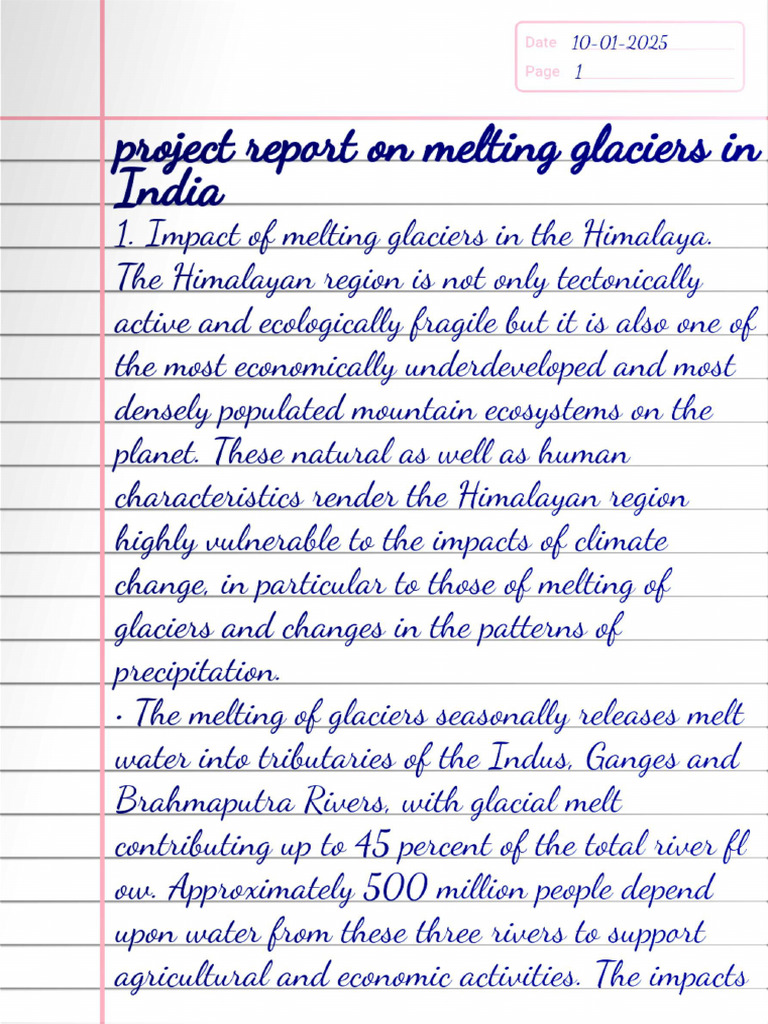 Date 10-01-2025
Page 1
project report on melting glaciers in
India
1. Impact of melting glaciers in the Himalaya.
The Himalayan region is not only tectonically
active and ecologically fragile but it is also one of
the most economically underdeveloped and most
densely populated mountain ecosystems on the
planet. These natural as well as human
characteristics render the Himalayan region
highly vulnerable to the impacts of climate
change, in particular to those of melting of
glaciers and changes in the patterns of
precipitation.
• The melting of glaciers seasonally releases melt
water into tributaries of the Indus, Ganges and
Brahmaputra Rivers, with glacial melt
contributing up to 45 percent of the total river fl
ow. Approximately 500 million people depend
upon water from these three rivers to support
agricultural and economic activities. The impacts